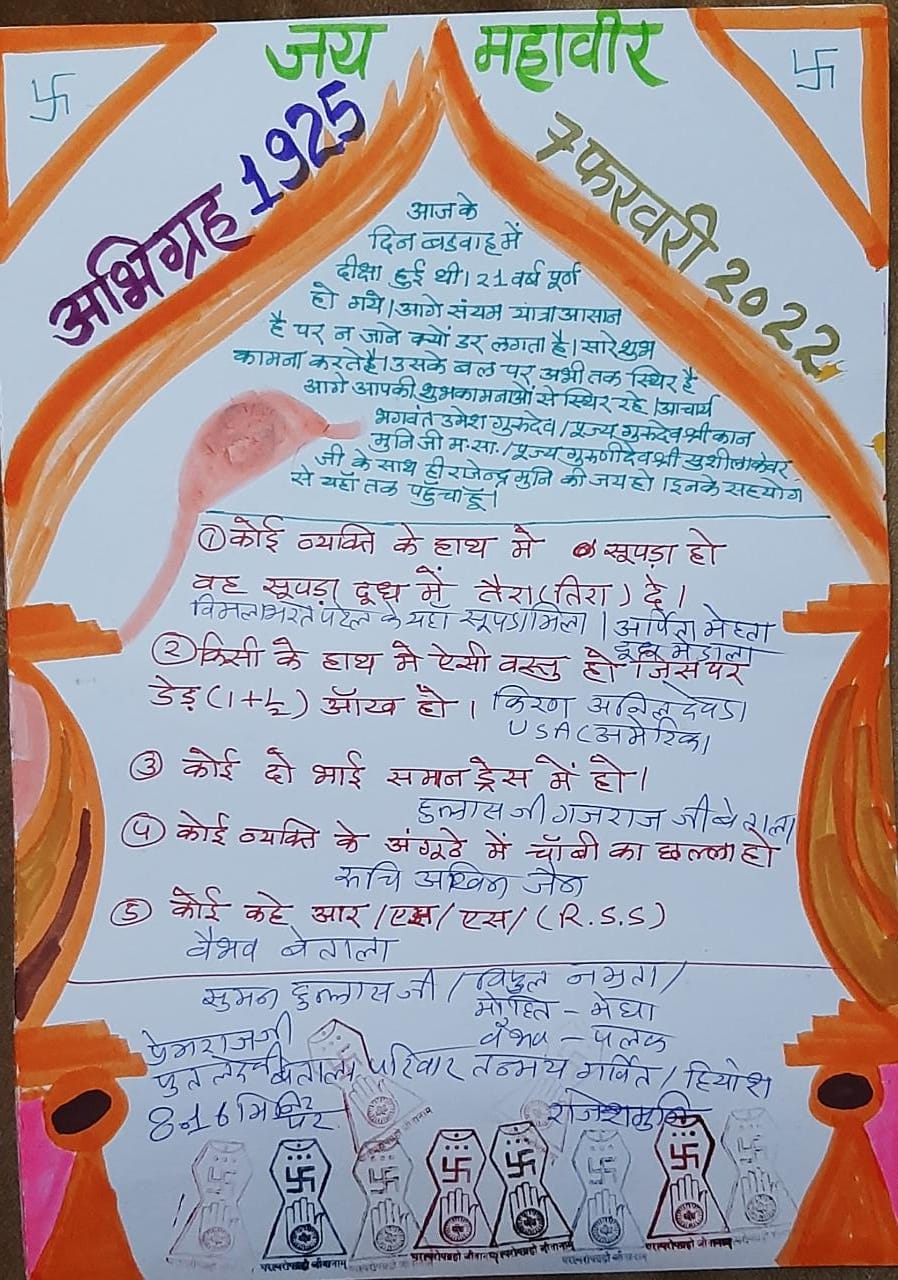 जय महावीर
अभिग्रह 1925
7 फरवरी 2022
आज के
दिन बडवाह में
दीक्षा हुई थी। 21 वर्ष पूर्ण
हो गये। आगे संयम यात्रा आसान
है पर न जाने क्यों डर लगता है। सारे शुभ
कामना करते है। उसके बल पर अभी तक स्थिर है
आगे आपकी शुभकामनाओं से स्थिर रहे। आचार्य
भगवंत उमेश गुरुदेव/पूज्य गुरुदेव श्री कान
मुनि जी म.सा./पूज्य गुरुणीदेव श्री सुशीलाकंवर
जी के साथ ही राजेन्द्र मुनि की जय हो। इनके सहयोग
से यहाँ तक पहुँचा हूं।
① कोई व्यक्ति के हाथ मे सूपड़ा हो
वह सूपड़ा दूध में तैरा (तिरा) दे।
विमला भरत पटेल के यहाँ सूपडा मिला। अर्पिता मेहता
दूध मे डाला
② किसी के हाथ मे ऐसी वस्तु हो जिस पर
डेड़ (1+½) ऑख हो। किरण अनिल देवडा
USA (अमेरिका
③ कोई दो भाई समान ड्रेस में हो।
हुल्लास जी गजराज जी बेताला
④ कोई व्यक्ति के अंगूठे में चॉबी का छल्ला हो
रुचि अखिल जैन
⑤ कोई कहे आर/एस/एस/(R.S.S)
वैभव बेताला
सुमन हुल्लास जी / विपुल नम्रता/
मोहित - मेघा
वैभव - पलक
प्रेमराज जी
बेताला परिवार तन्मय गर्वित / हियांश
8 न 16 मिनिट पर राजेशमुनि
परस्परोपग्रहो जीवानाम्
परस्परोपग्रहो जीवानाम्
परस्परोपग्रहो जीवानाम्
परस्परोपग्रहो जीवानाम्